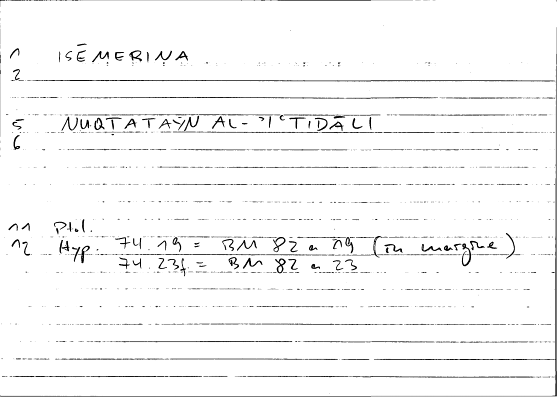 1 ISĒMERINA
2
5 NUQṬATAYN AL-ʾIʿTIDĀLI
6
11 Ptol.
12 Hyp. 74.19 = BM 82 a 19 (in margine)
74.23f = BM 82 a 23